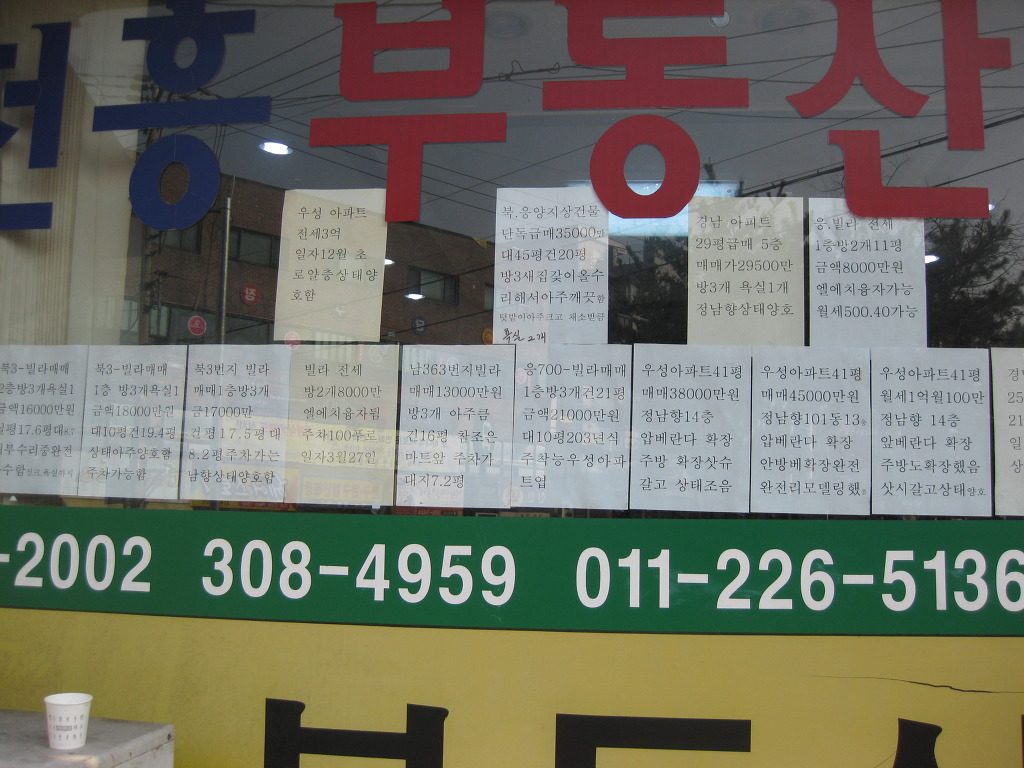 흥 부동산
우성 아파트
전세3억
일자12월 초
로얄층상태양
호함
북.응양지상건물
단독급매35000만
대45평건20평
방3새집갖이올수
리해서아주깨끗함
텃밭이아주크고 채소받큼
욕실 2개
경남 아파트
29평급매 5층
매매가29500만
방3개 욕실1개
정남향상태양호
응.빌라 전세
1층방2개11평
금액8000만원
엘에치융자가능
월세500.40가능
북3-빌라매매
2층방3개욕실1
금액16000만원
실평17.6평대
내부수리중완전
북3-빌라매매
1층 방3개욕실1
금액18000만원
대10평건19.4평
상태아주양호함
주차가능함
북3번지 빌라
매매1층방3개
금17000만
건평17.5평 대
8.2평주차가는
남향상태양호함
빌라 전세
방2개8000만
엔에치융자됨
주차100푸로
일자3월27인
남363번지빌라
매매13000만원
방3개 아주큼
건16평 찬조은
마트앞 주차가
대지7.2평
응700-빌라매매
1층방3개건21평
금액21000만원
대10평203년식
주착능우성아파
트엽
우성아파트41평
매매38000만원
정남향14층
앞베란다 확장
주방 확장삿슈
갈고 상태조음
우성아파트41평
매매45000만원
정남향101동13층
앞베란다 확장
안방베확장완전
완전리모델링했음
우성아파트41평
월세1억월100만
정남향 14층
앞베란다 확장
주방도확장했음
삿시갈고상태양호
-2002 308-4959 011-226-5136